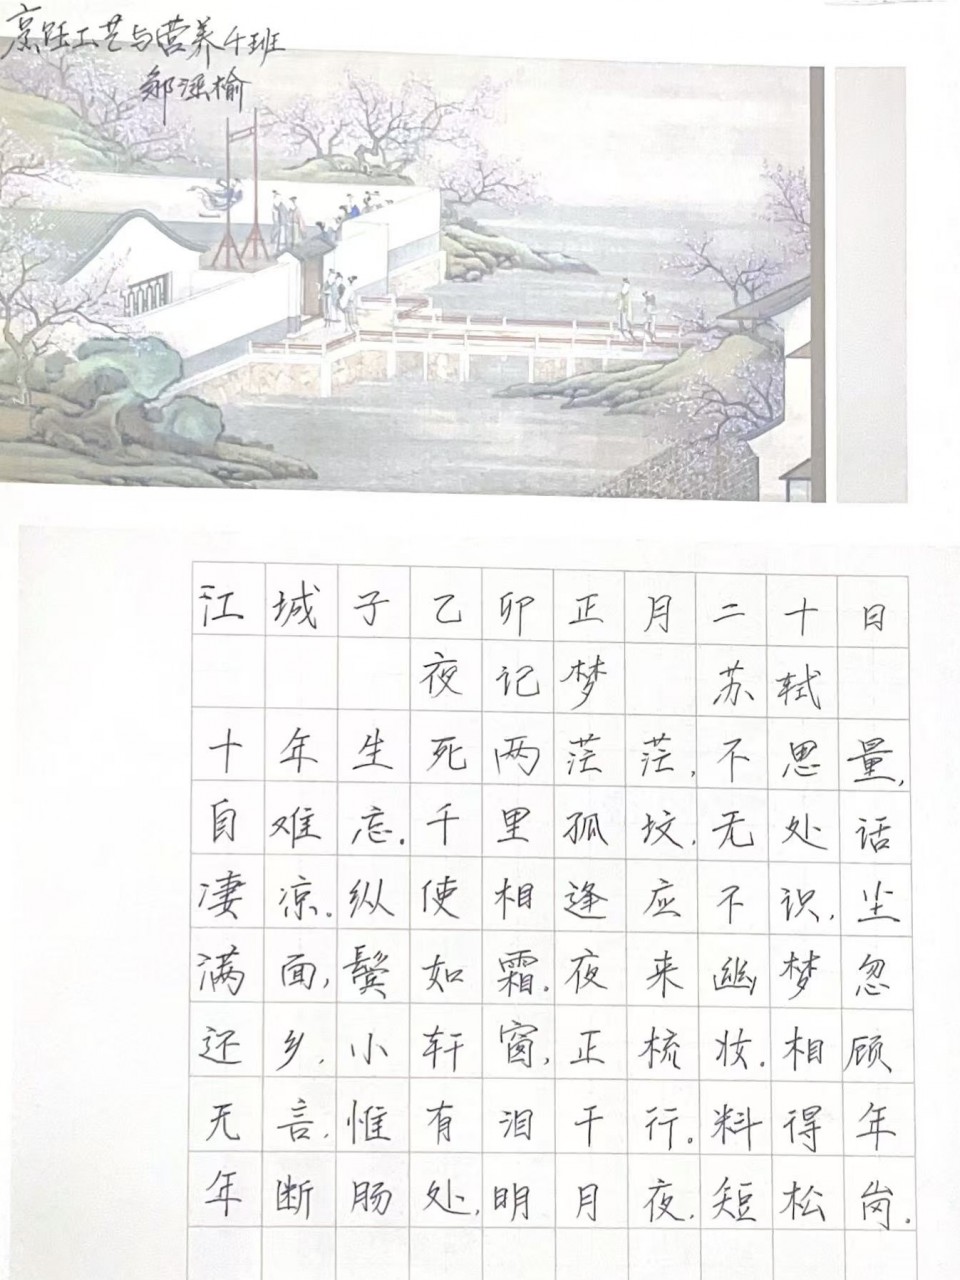 烹饪工艺与营养4班
郇滛榆
江城子乙卯正月二十日
夜记梦 苏轼
十年生死两茫茫,不思量,
自难忘.千里孤坟,无处话
凄凉.纵使相逢应不识,尘
满面,鬓如霜.夜来幽梦忽
还乡,小轩窗,正梳妆.相顾
无言,惟有泪千行.料得年
年断肠处,明月夜,短松岗.